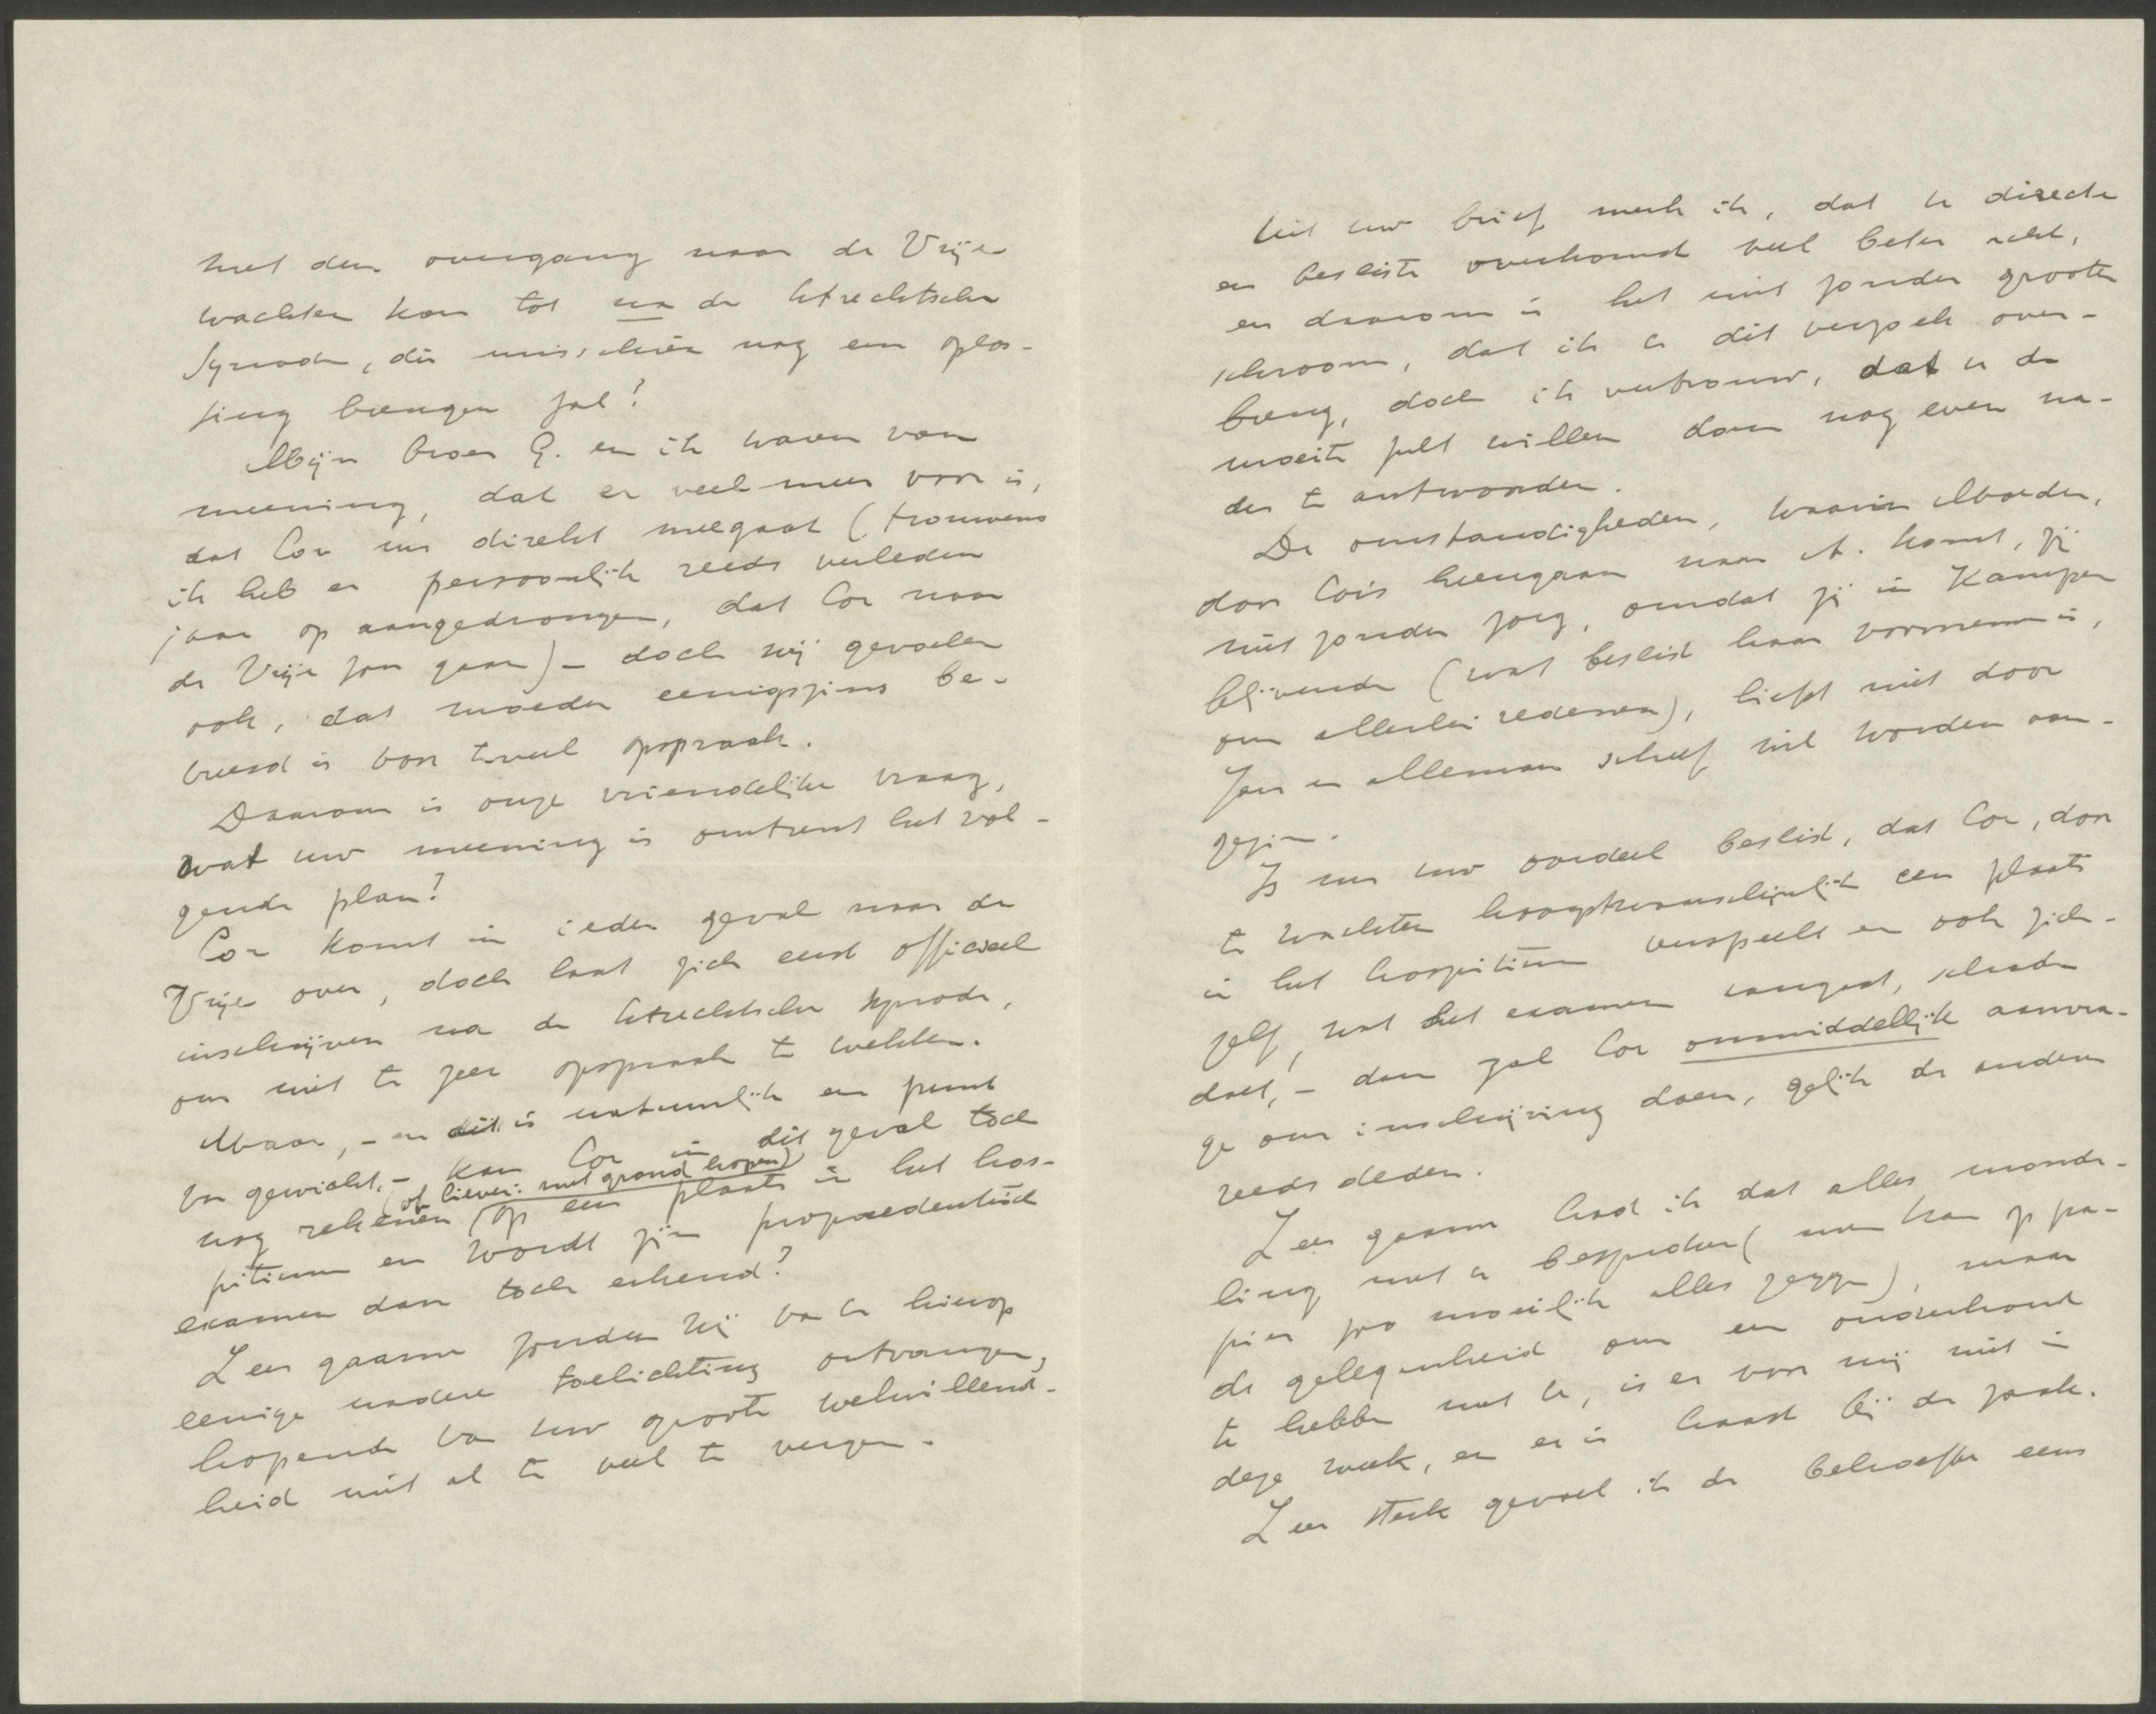 met den overgang naar de Vrije
wachten kan tot na de Utrechtsche
Synode, die misschien nog een oplos-
sing brengen zal?
Mijn broer G. en ik waren van
meening, dat er veel meer voor is,
dat Cor nu direkt meegaat (trouwens
ik heb er persoonlijk reeds verleden
jaar op aangedrongen, dat Cor naar
de Vrije zou gaan) – doch wij gevoelen
ook, dat moeder eenigszins be-
vreesd is voor teveel opspraak.
Daarom is onze vriendelijke vraag,
wat uw meening is omtrent het vol-
gende plan?
Cor komt in ieder geval naar de
Vrije over, doch laat zich eerst officieel
inschrijven na de Utrechtsche Synode,
om niet te zeer opspraak te wekken.
Maar, – en dit is natuurlijk een punt
van gewicht, – kan Cor in dit geval toch
(of liever: met grond hopen)
nog rekenen op een plaats in het hos-
pitium en wordt zijn propaedeutisch
examen dan toch erkend?
Zeer gaarne zouden wij van U hierop
eenige nadere toelichting ontvangen,
hopende van uw groote welwillend-
heid niet al te veel te vergen.
Uit uw brief merk ik, dat U directe
en besliste overkomst veel beter acht,
en daarom is het niet zonder groote
schroom, dat ik U dit verzoek over-
breng, doch ik vertrouw, dat U de
moeite zult willen doen nog even na-
der te antwoorden.
De omstandigheden, waarin Moeder,
door Cor's heengaan naar A. komt, zij
niet zonder zorg, omdat zij in Kampen
blijvende (wat beslist haar voornemen is,
om allerlei redenen), liefst niet door
Jan en alleman scheef wil worden aan-
gezien.
Is nu uw oordeel beslist, dat Cor, door
te wachten hoogstwaarschijnlijk een plaats
in het hospitium verspeelt en ook zich-
zelf, wat het examen aangaat, schade
doet, – dan zal Cor onmiddellijk aanvra-
ge om inschrijving doen, gelijk de anderen
reeds deden.
Zeer gaarne had ik dat alles monde-
ling met U besproken (men kan op pa-
pier zoo moeilijk alles zeggen), maar
de gelegenheid om een onderhoud
te hebben met U, is er voor mij niet in
deze week, en er is haast bij de zaak.
Zeer sterk gevoel ik de behoefte eens